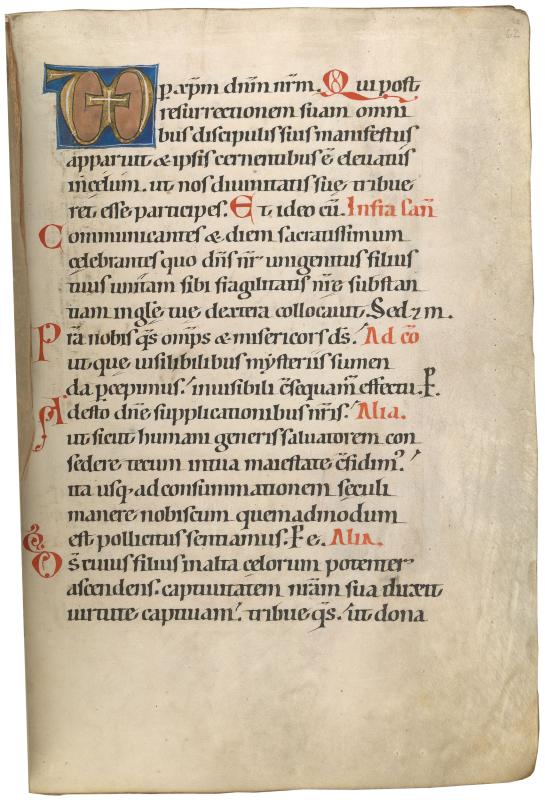 62
VD p xp̄m dn̄m nr̄m. Qui post
resurrectionem suam omni
bus discipulis suis manifestus
apparuit & ipsis cernentibus ē eleuatus
in celum. ut nos diuinitatis sue tribue
ret esse participes. Et ideo cū. Infra can̄
Communicantes & diem sacratissimum
celebrantes quo dn̄s nr̄ unigenitus filius
tuus unitam sibi fragilitatis nr̄e substan
tiam in glē tue dextera collocauit. Sed 7 m.
Prā nobis q̄s omp̄s & misericors ds̄. Ad cō
ut que uisibilibus mysteriis sumen
da p̄cepimus. inuisibili c̄sequam̄ effectu. P̄.
Adesto dn̄e supplicationibus nr̄is. Alia.
ut sicut humani generis saluatorem con
sedere tecum in tua maiestate c̄fidim᷒.
ita usq; ad consummationem seculi
manere nobiscum quemadmodum
est pollicitus sentiamus. P e. Alia.
Ds̄ cuius filius in alta celorum potenter
ascendens. captiuitatem nrām sua duxit
uirtute captiuam. tribue q̄s. ut dona